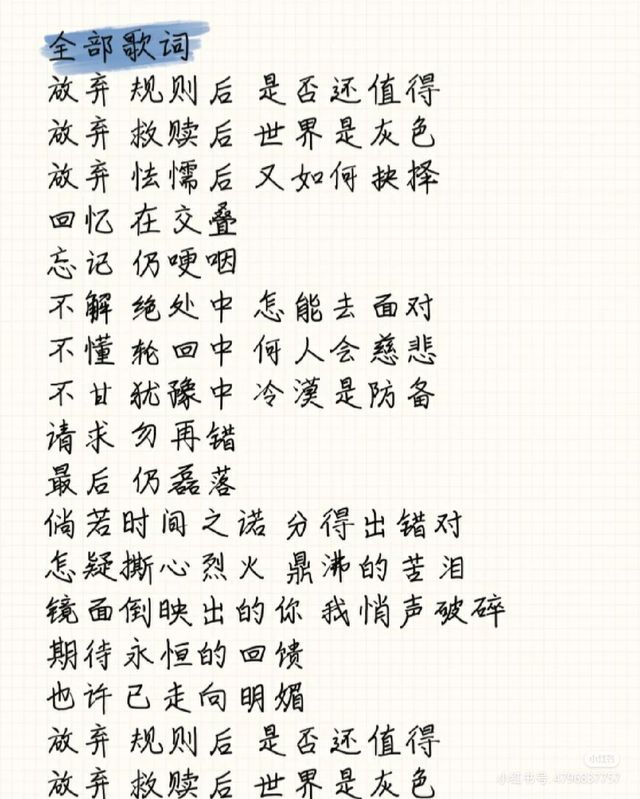 全部歌词
放弃 规则后 是否还值得
放弃 救赎后 世界是灰色
放弃 怯懦后 又如何抉择
回忆 在交叠
忘记 仍哽咽
不解 绝处中 怎能去面对
不懂 轮回中 何人会慈悲
不甘 犹豫中 冷漠是防备
请求 勿再错
最后 仍磊落
倘若时间之诺 分得出错对
怎疑撕心烈火 鼎沸的苦泪
镜面倒映出的你 我悄声破碎
期待永恒的回馈
也许已走向明媚
放弃 规则后 是否还值得
放弃 救赎后 世界是灰色
小红书
小红书号 4796837757